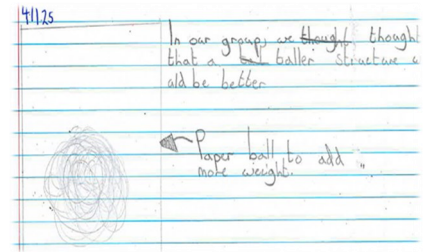 4/1/25
In our group, we thought thought
that a baller structure w
ald be better
Paper ball to add
more weight.